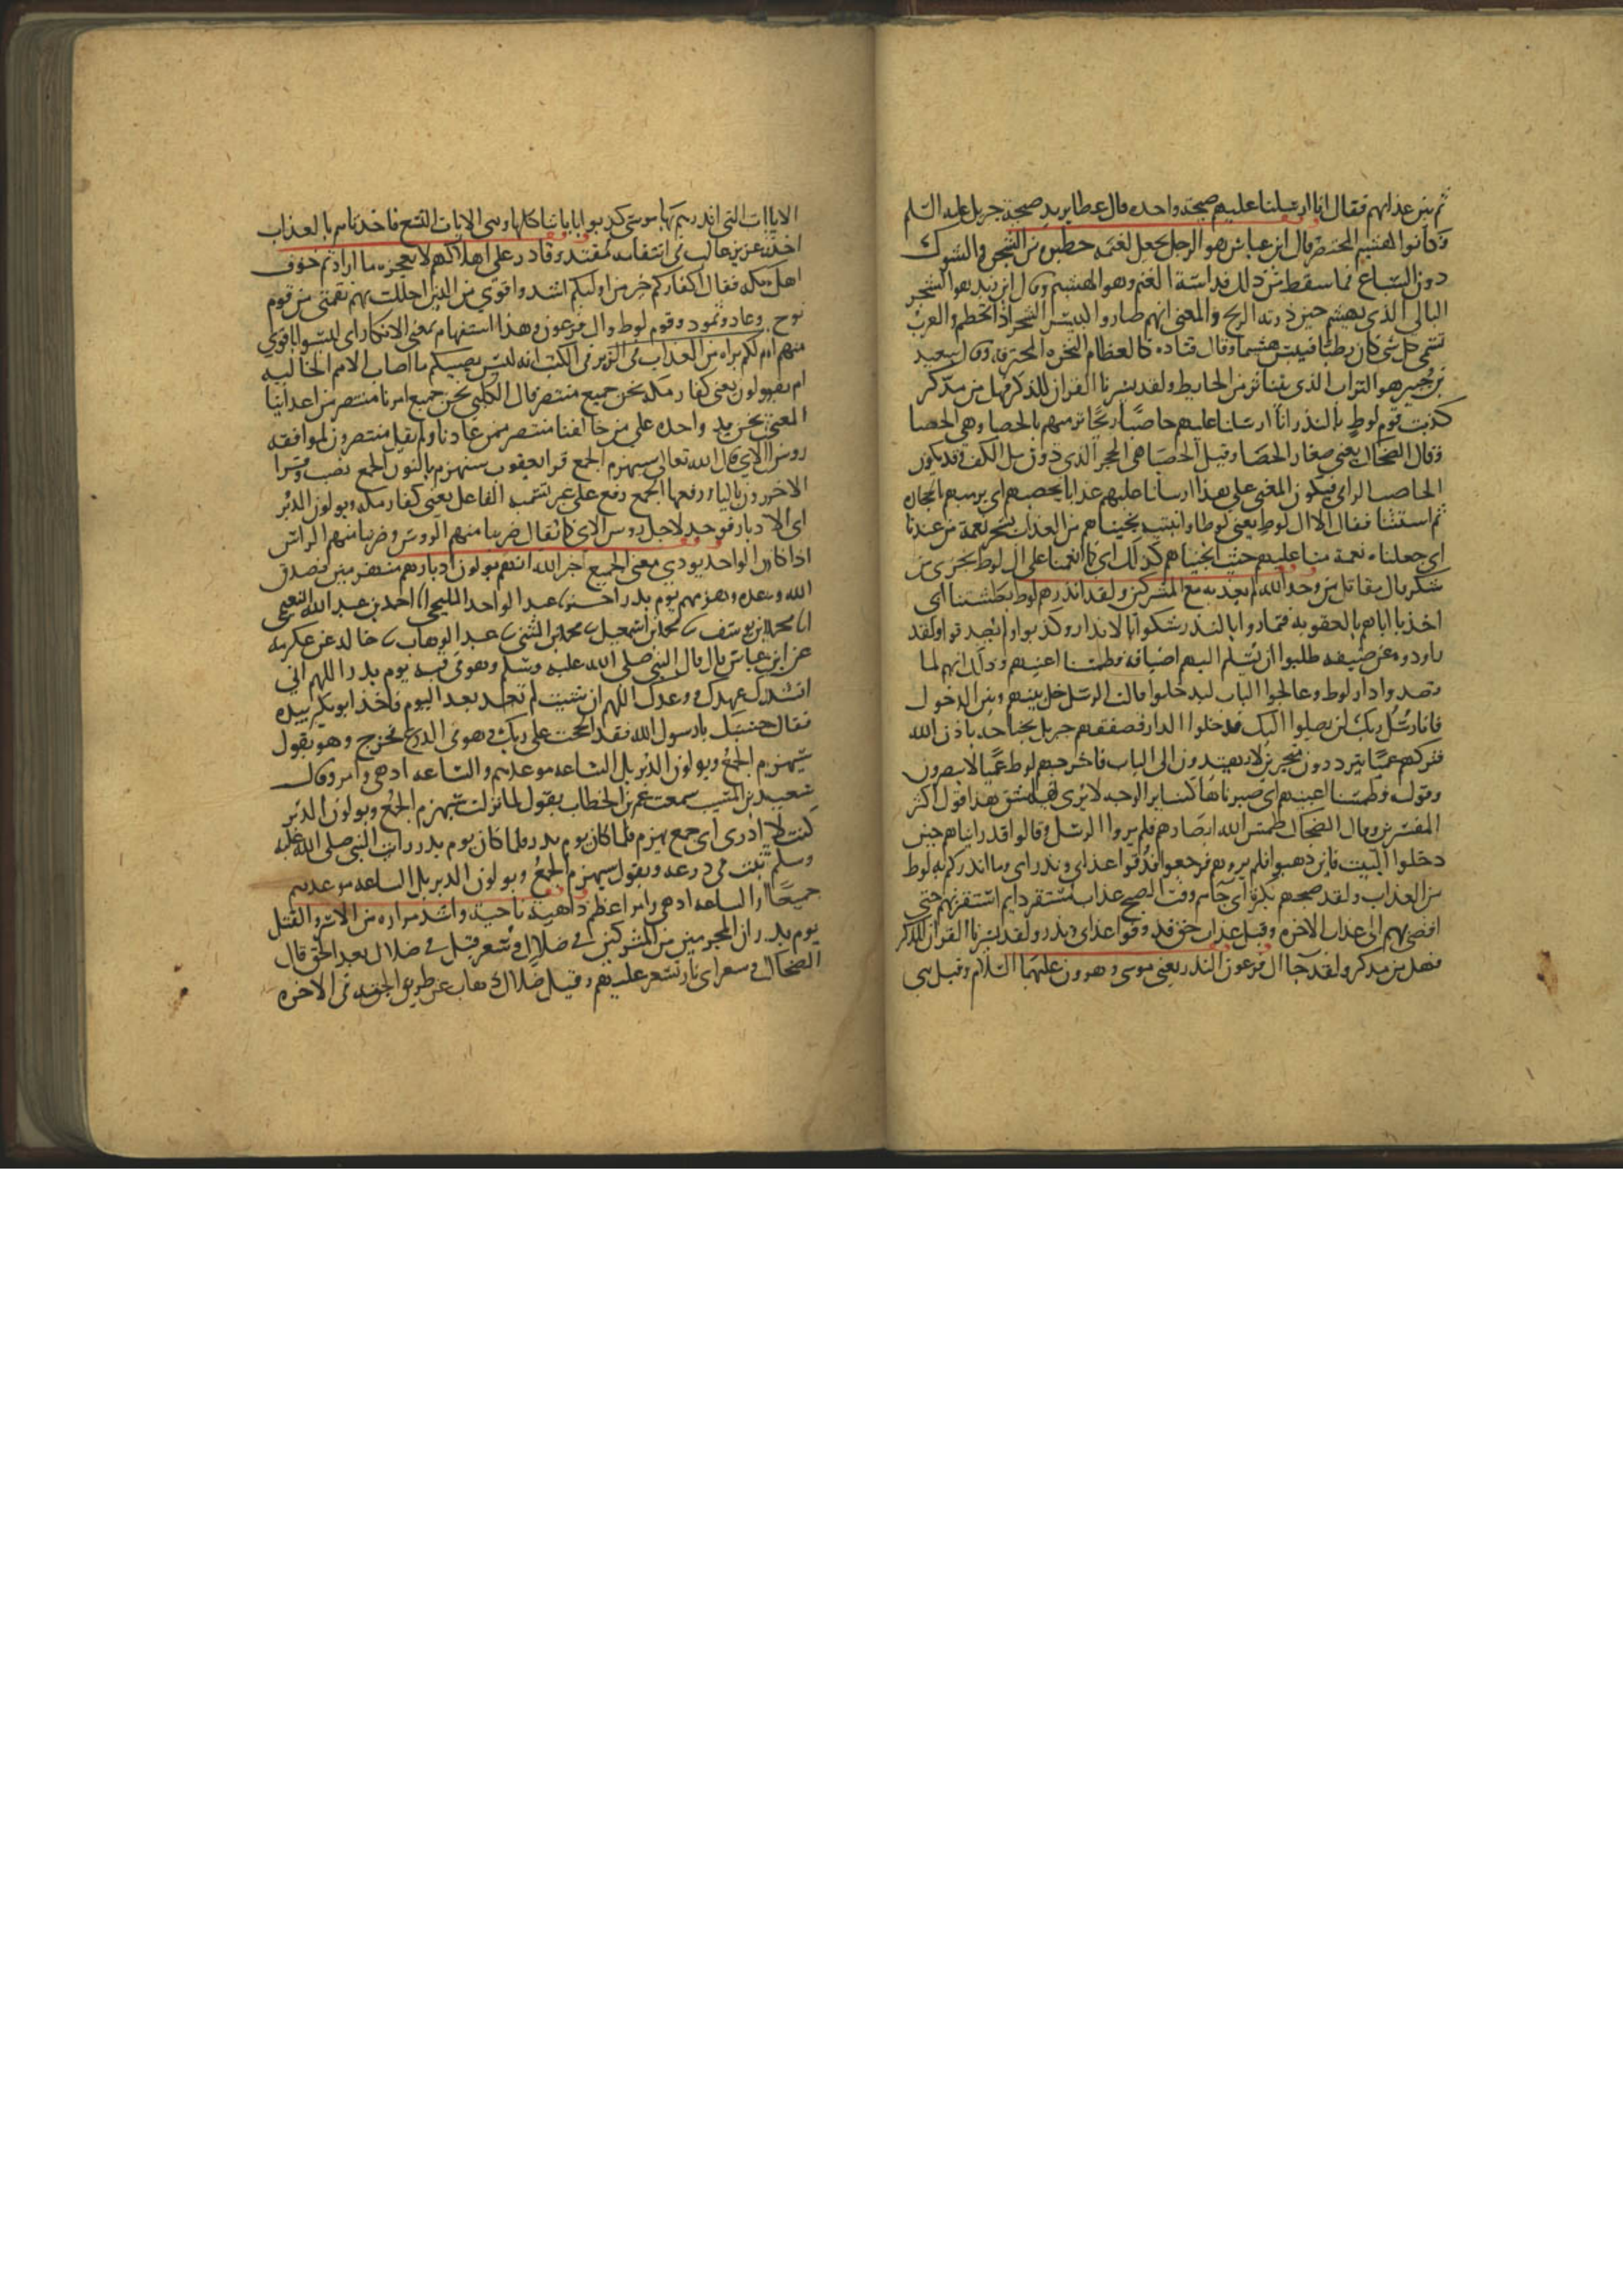 ثم بين عذابهم فقال انا ارسلنا عليهم صيحة واحده قال عطا يريد صيحة جبريل عليه السلم
فكانوا كهشيم المحتضر قال ابن عباس هو الرجل يجعل لغنمه حظيره من الشجر والشوك
دون السباع فما سقط من ذلك فداسته الغنم وهو الهشيم وقال ابن زيد هو الشجر
البالي الذي يهشم حين ذرته الريح والمعنى انهم صاروا كيبس الشجر اذا تحطم والعرب
تسمي كل شي كان رطبا فيبس هشيما وقال قتاده كالعظام النخره المحترقه وقال سعيد
بن جبير هو التراب الذي يتناثر من الحايط ولقد يسرنا القران للذكر فهل من مدكر
كذبت قوم لوط بالنذر انا ارسلنا عليهم حاصبا ريحا ترميهم بالحصبا وهي الحصا
وقال الضحاك يعني صغار الحصا وقيل الحصبا هي الحجر الذي دون مل الكف وقد يكون
الحاصب الرامي فيكون المعنى على هذا ارسلنا عليهم عذابا يحصبهم اي يرميهم بالحجاره
ثم استثنا فقال الا ال لوط يعني لوطا وابنتيه نجيناهم من العذاب بسحر نعمة من عندنا
اي جعلناه نعمة منا عليهم حيث انجيناهم كذلك اي كما انعمنا على ال لوط نجزي من
شكر قال مقاتل من وحد الله لم يعذبه مع المشركين ولقد انذرهم لوط بطشتنا اي
اخذنا اياهم بالعقوبه فتماروا بالنذر شكوا بالانذار وكذبوا ولم يصدقوا ولقد
راودوه عن ضيفه طلبوا ان يسلم اليهم اضيافه فطمسنا اعينهم وذلك انهم لما
قصدوا دار لوط وعالجوا الباب ليدخلوا قالت الرسل خل بينهم وبين الدخول
فانا رسل ربك لن يصلوا اليك فدخلوا الدار فصفقهم جبريل بجناحه باذن الله
فتركهم عميا يترددون متحيرين لا يهتدون الى الباب فاخرجهم لوط عميا لا يبصرون
وقوله فطمسنا اعينهم اي صيرناها كساير الوجه لا يرى لها شق هذا قول اكثر
المفسرين وقال الضحاك طمس الله ابصارهم فلم يروا الرسل وقالوا قد رايناهم حين
دخلوا البيت فاين ذهبوا فلم يروهم فرجعوا فذوقوا عذابي ونذر اي وما انذركم به لوط
من العذاب ولقد صبحهم بكرة اي جاهم وقت الصبح عذاب مستقر دايم استقر بهم حتى
افضى بهم الى عذاب الاخره وقيل عذاب حق فذوقوا عذابي ونذر ولقد يسرنا القران للذكر
فهل من مدكر ولقد جا ال فرعون النذر يعني موسى وهرون عليهما السلام وقيل هي
الايات التي انذرهم بها موسى كذبوا باياتنا كلها وهي الايات التسع فاخذناهم بالعذاب
اخذ عزيز غالب في انتقامه مقتدر قادر على اهلاكهم لا يعجزه ما اراد ثم خوف
اهل مكه فقال اكفاركم خير من اوليكم اشد واقوى من الذين احللت بهم نقمتي من قوم
نوح وعاد وثمود وقوم لوط وال فرعون وهذا استفهام بمعنى الانكار اي ليسوا باقوى
منهم ام لكم براه من العذاب في الزبر في الكتب انه ليس يصيبكم ما اصاب الامم الخاليه
ام يقولون يعني كفار مكه نحن جميع منتصر قال الكلبي نحن جميع امرنا منتصر من اعداينا
المعنى نحن يد واحده على من خالفنا منتصر ممن عادنا ولم يقل منتصرون لموافقه
روس الاي قال الله تعالى سيهزم الجمع قرا يعقوب سنهزم بالنون الجمع نصب وقرا
الاخرون باليا ورفعها الجمع رفع على غير تسميه الفاعل يعني كفار مكه ويولون الدبر
اي الادبار فوحد لاجل روس الاي كما يقال ضربنا منهم الروس وضربنا منهم الراس
اذا كان الواحد يودي معنى الجميع اخبر الله انهم يولون ادبارهم منهزمين فصدق
الله وعده وهزمهم يوم بدر اخبرنا عبد الواحد المليحي انا احمد بن عبد الله النعيمي
انا محمد بن يوسف نا محمد بن اسمعيل نا محمد بن المثنى نا عبد الوهاب نا خالد عن عكرمه
عن ابن عباس قال قال النبي صلى الله عليه وسلم وهو في قبه يوم بدر اللهم اني
انشدك عهدك ووعدك اللهم ان شيت لم تعبد بعد اليوم فاخذ ابو بكر بيده
فقال حسبك يا رسول الله فقد الححت على ربك وهو في الدرع فخرج وهو يقول
سيهزم الجمع ويولون الدبر بل الساعه موعدهم والساعه ادهى وامر وقال
سعيد بن المسيب سمعت عمر بن الخطاب يقول لما نزلت سيهزم الجمع ويولون الدبر
كنت لا ادري اي جمع يهزم فلما كان يوم بدر فلما كان يوم بدر رايت النبي صلى الله عليه
وسلم يثب في درعه ويقول سيهزم الجمع ويولون الدبر بل الساعه موعدهم
جميعا والساعه ادهى وامر اعظم داهية ناحية واشد مراره من الاسر والقتل
يوم بدر ان المجرمين من المشركين في ضلال وسعر قيل في ضلال بعد الحق قال
الضحاك وسعر اي نار تسعر عليهم وقيل ضلال ذهاب عن طريق الجنه في الاخره